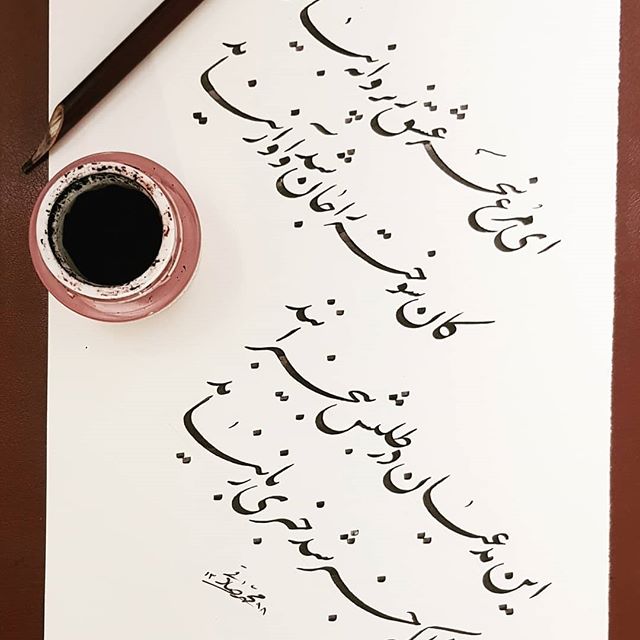 ای مرغ سحر عشق ز پروانه بیا
کان سوخته را جان شد و آواز نیامد
این مدعیان در طلبش بیخبرانند
که خبر شد خبری باز نیامد